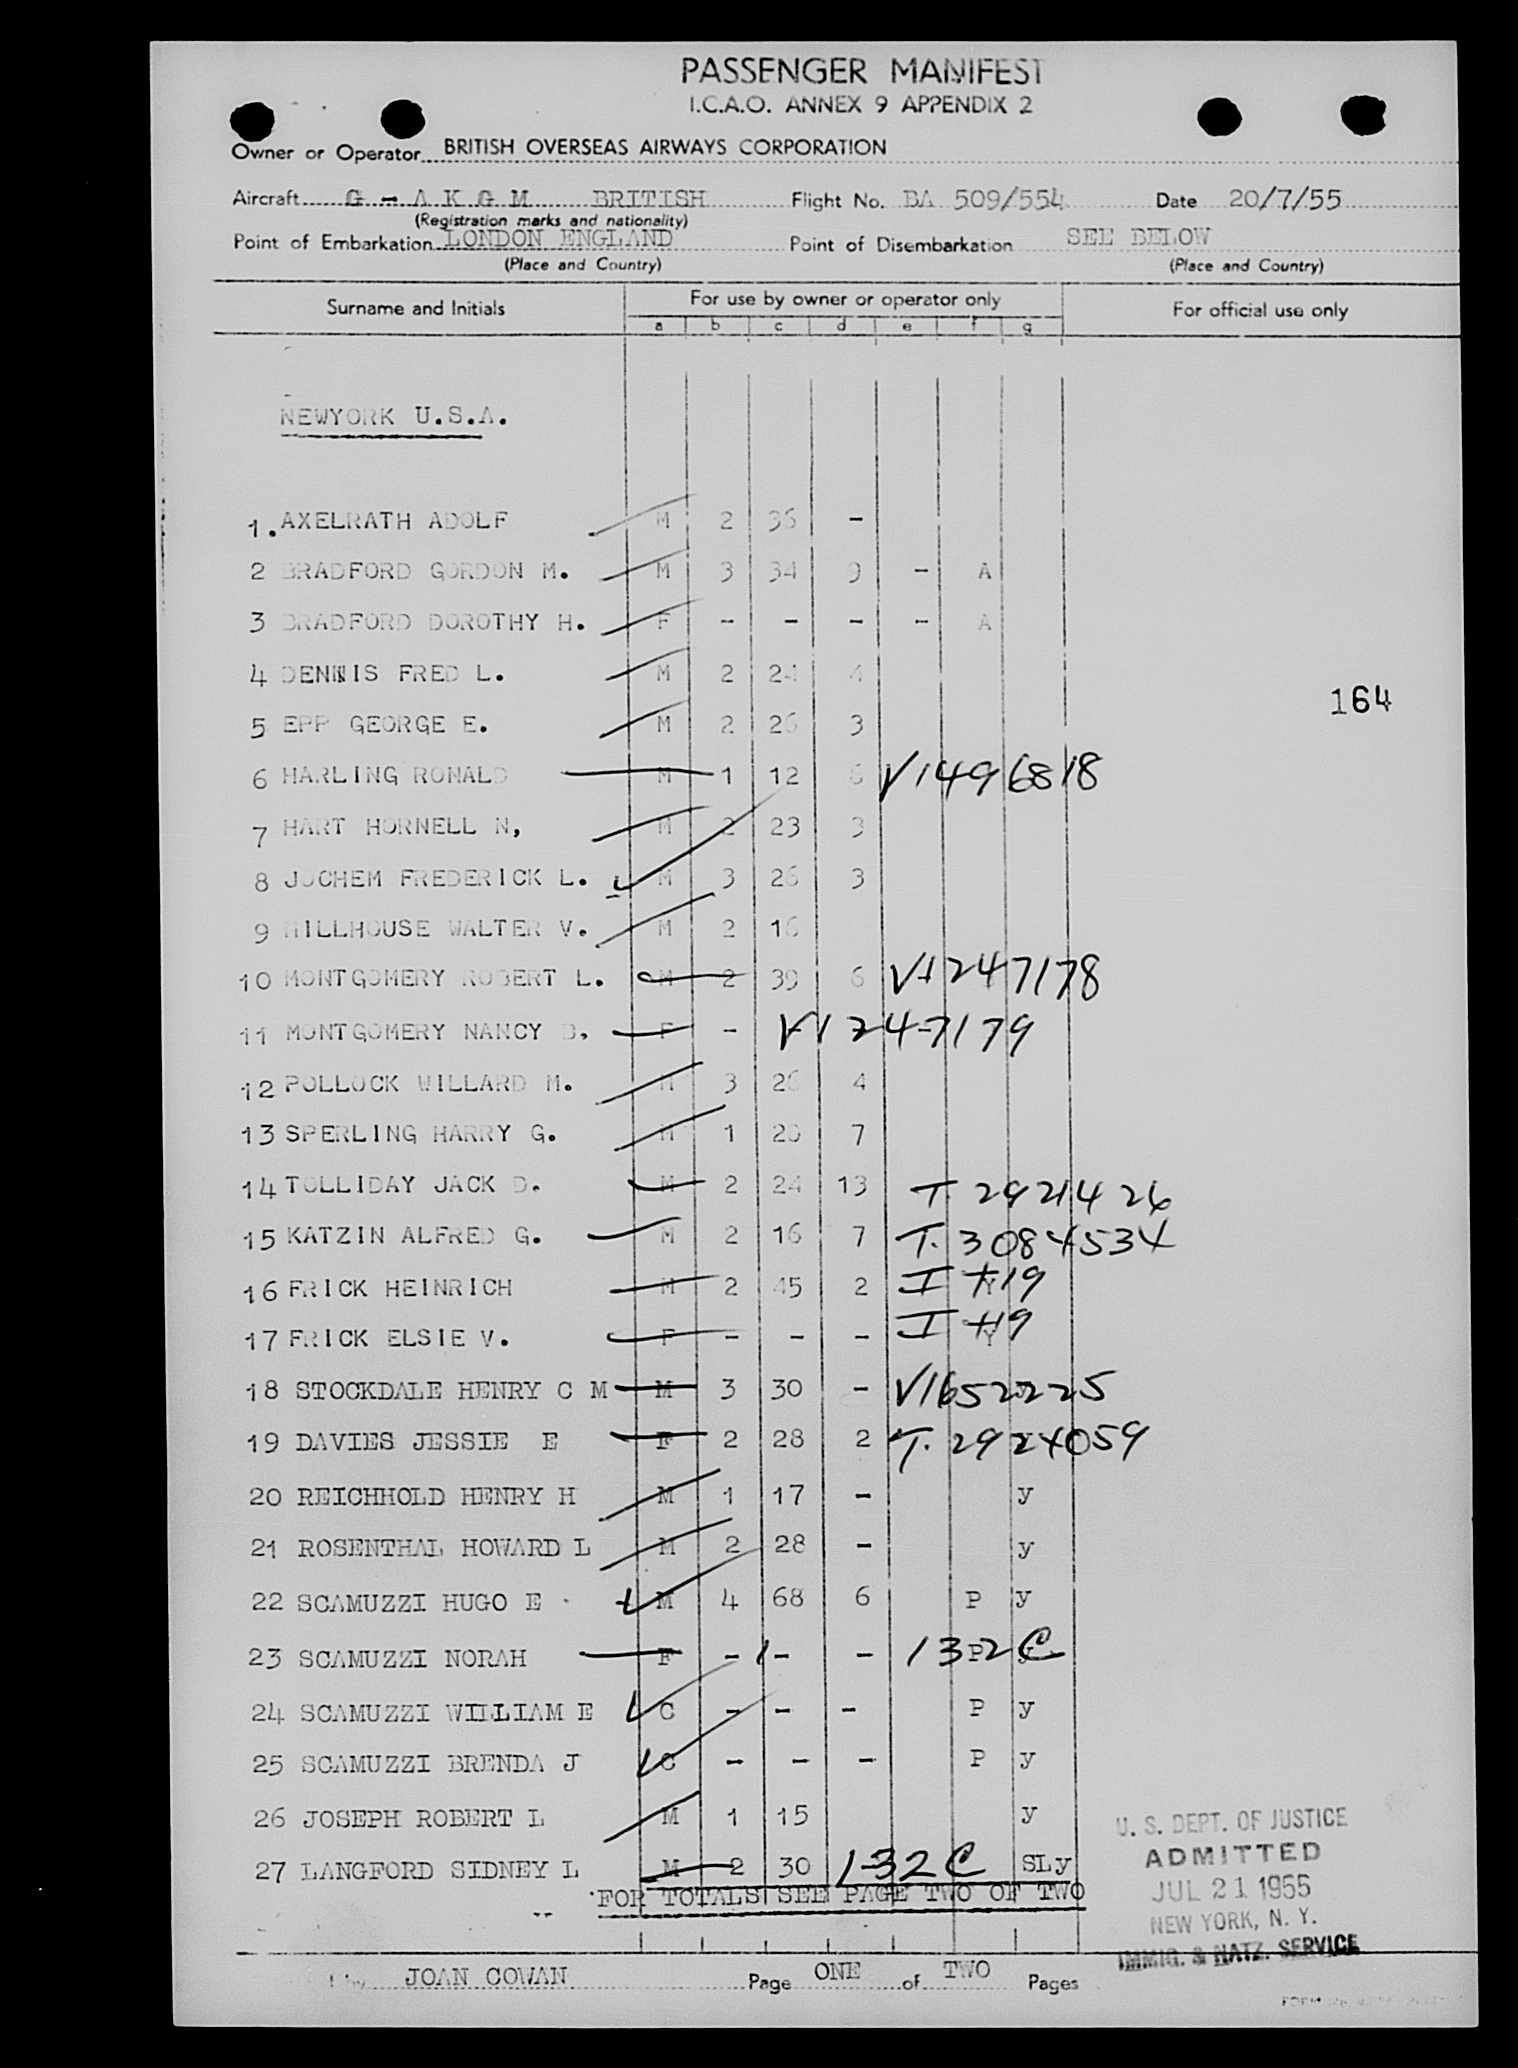 PASSENGER MANIFEST
I.C.A.O. ANNEX 9 APPENDIX 2
Owner or Operator BRITISH OVERSEAS AIRWAYS CORPORATION
Aircraft G - A K G M BRITISH Flight No. BA 509/554 Date 20/7/55
(Registration marks and nationality)
Point of Embarkation LONDON ENGLAND Point of Disembarkation SEE BELOW
(Place and Country) (Place and Country)
Surname and Initials For use by owner or operator only For official use only
a b c d e f g
NEWYORK U.S.A.
1. AXELRATH ADOLF M 2 36 -
2 BRADFORD GORDON M. M 3 34 9 - A
3 BRADFORD DOROTHY H. F - - - - A
4 DENNIS FRED L. M 2 24 4
164
5 EPP GEORGE E. M 2 26 3
6 HARLING RONALD M 1 12 6 V1496818
7 HART HORNELL N, M 2 23 3
8 JOCHEM FREDERICK L. M 3 26 3
9 MILLHOUSE WALTER V. M 2 16
10 MONTGOMERY ROBERT L. M 2 39 6 V1247178
11 MONTGOMERY NANCY B. F - V1247179
12 POLLOCK WILLARD M. M 3 26 4
13 SPERLING HARRY G. M 1 20 7
14 TOLLIDAY JACK D. M 2 24 13 T 2921426
15 KATZIN ALFRED G. M 2 16 7 T. 3084534
16 FRICK HEINRICH M 2 45 2 I 419 Y
17 FRICK ELSIE V. F - - - I 419 Y
18 STOCKDALE HENRY C M M 3 30 - V1652225
19 DAVIES JESSIE E F 2 28 2 T. 2924059
20 REICHHOLD HENRY H M 1 17 - y
21 ROSENTHAL HOWARD L M 2 28 - y
22 SCAMUZZI HUGO E M 4 68 6 P y
23 SCAMUZZI NORAH F - - - P y 132 C
24 SCAMUZZI WILLIAM E C - - - P y
25 SCAMUZZI BRENDA J C - - - P y
26 JOSEPH ROBERT L M 1 15 y
27 LANGFORD SIDNEY L M 2 30 132 C SLy
FOR TOTALS SEE PAGE TWO OF TWO
U. S. DEPT. OF JUSTICE
ADMITTED
JUL 21 1955
NEW YORK, N. Y.
IMMIG. & NATZ. SERVICE
by JOAN COWAN Page ONE of TWO Pages